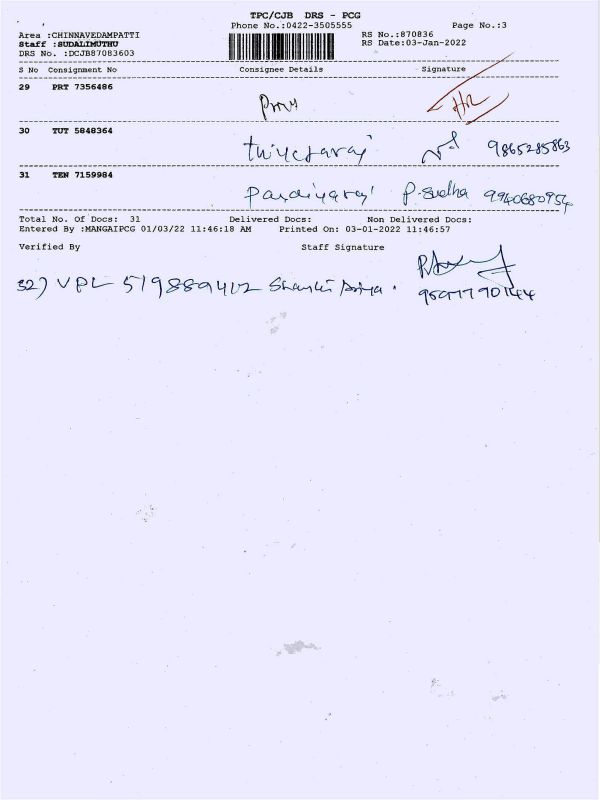 TPC/CJB DRS - PCG
Phone No.:0422-3505555 Page No.:3
Area :CHINNAVEDAMPATTI RS No.:870836
Staff :SUDALIMUTHU RS Date:03-Jan-2022
DRS No. :DCJB87083603
S No Consignment No Consignee Details Signature
29 PRT 7356486
30 TUT 5848364
thiyagaraj 9865285863
31 TEN 7159984
Pandiyaraj P.sudha 9940680954
Total No. Of Docs: 31 Delivered Docs: Non Delivered Docs:
Entered By :MANGAIPCG 01/03/22 11:46:18 AM Printed On: 03-01-2022 11:46:57
Verified By Staff Signature
32) VPL 519889412